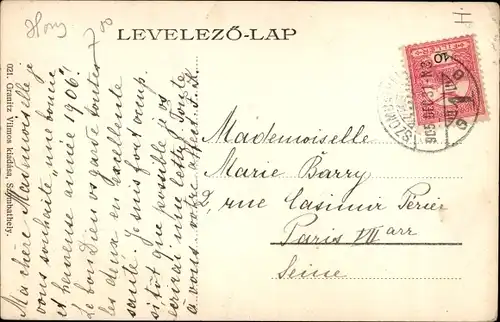 Hong
700
H.
LEVELEZŐ-LAP
10
021. Granitz Vilmos kiadása, Szombathely.
Ma chère Mademoiselle je
vous souhaite „une bonne
et heureuse année 1906"!
Le bon Dieu vs garde toutes
les deux en excellente
santé. Je suis fort occup.
sitôt que possible je vs
écrirai une lettre. Toute
à vous, votre
Mademoiselle
Marie Barry
2, rue Casimir Périer
Paris VII arr
Seine